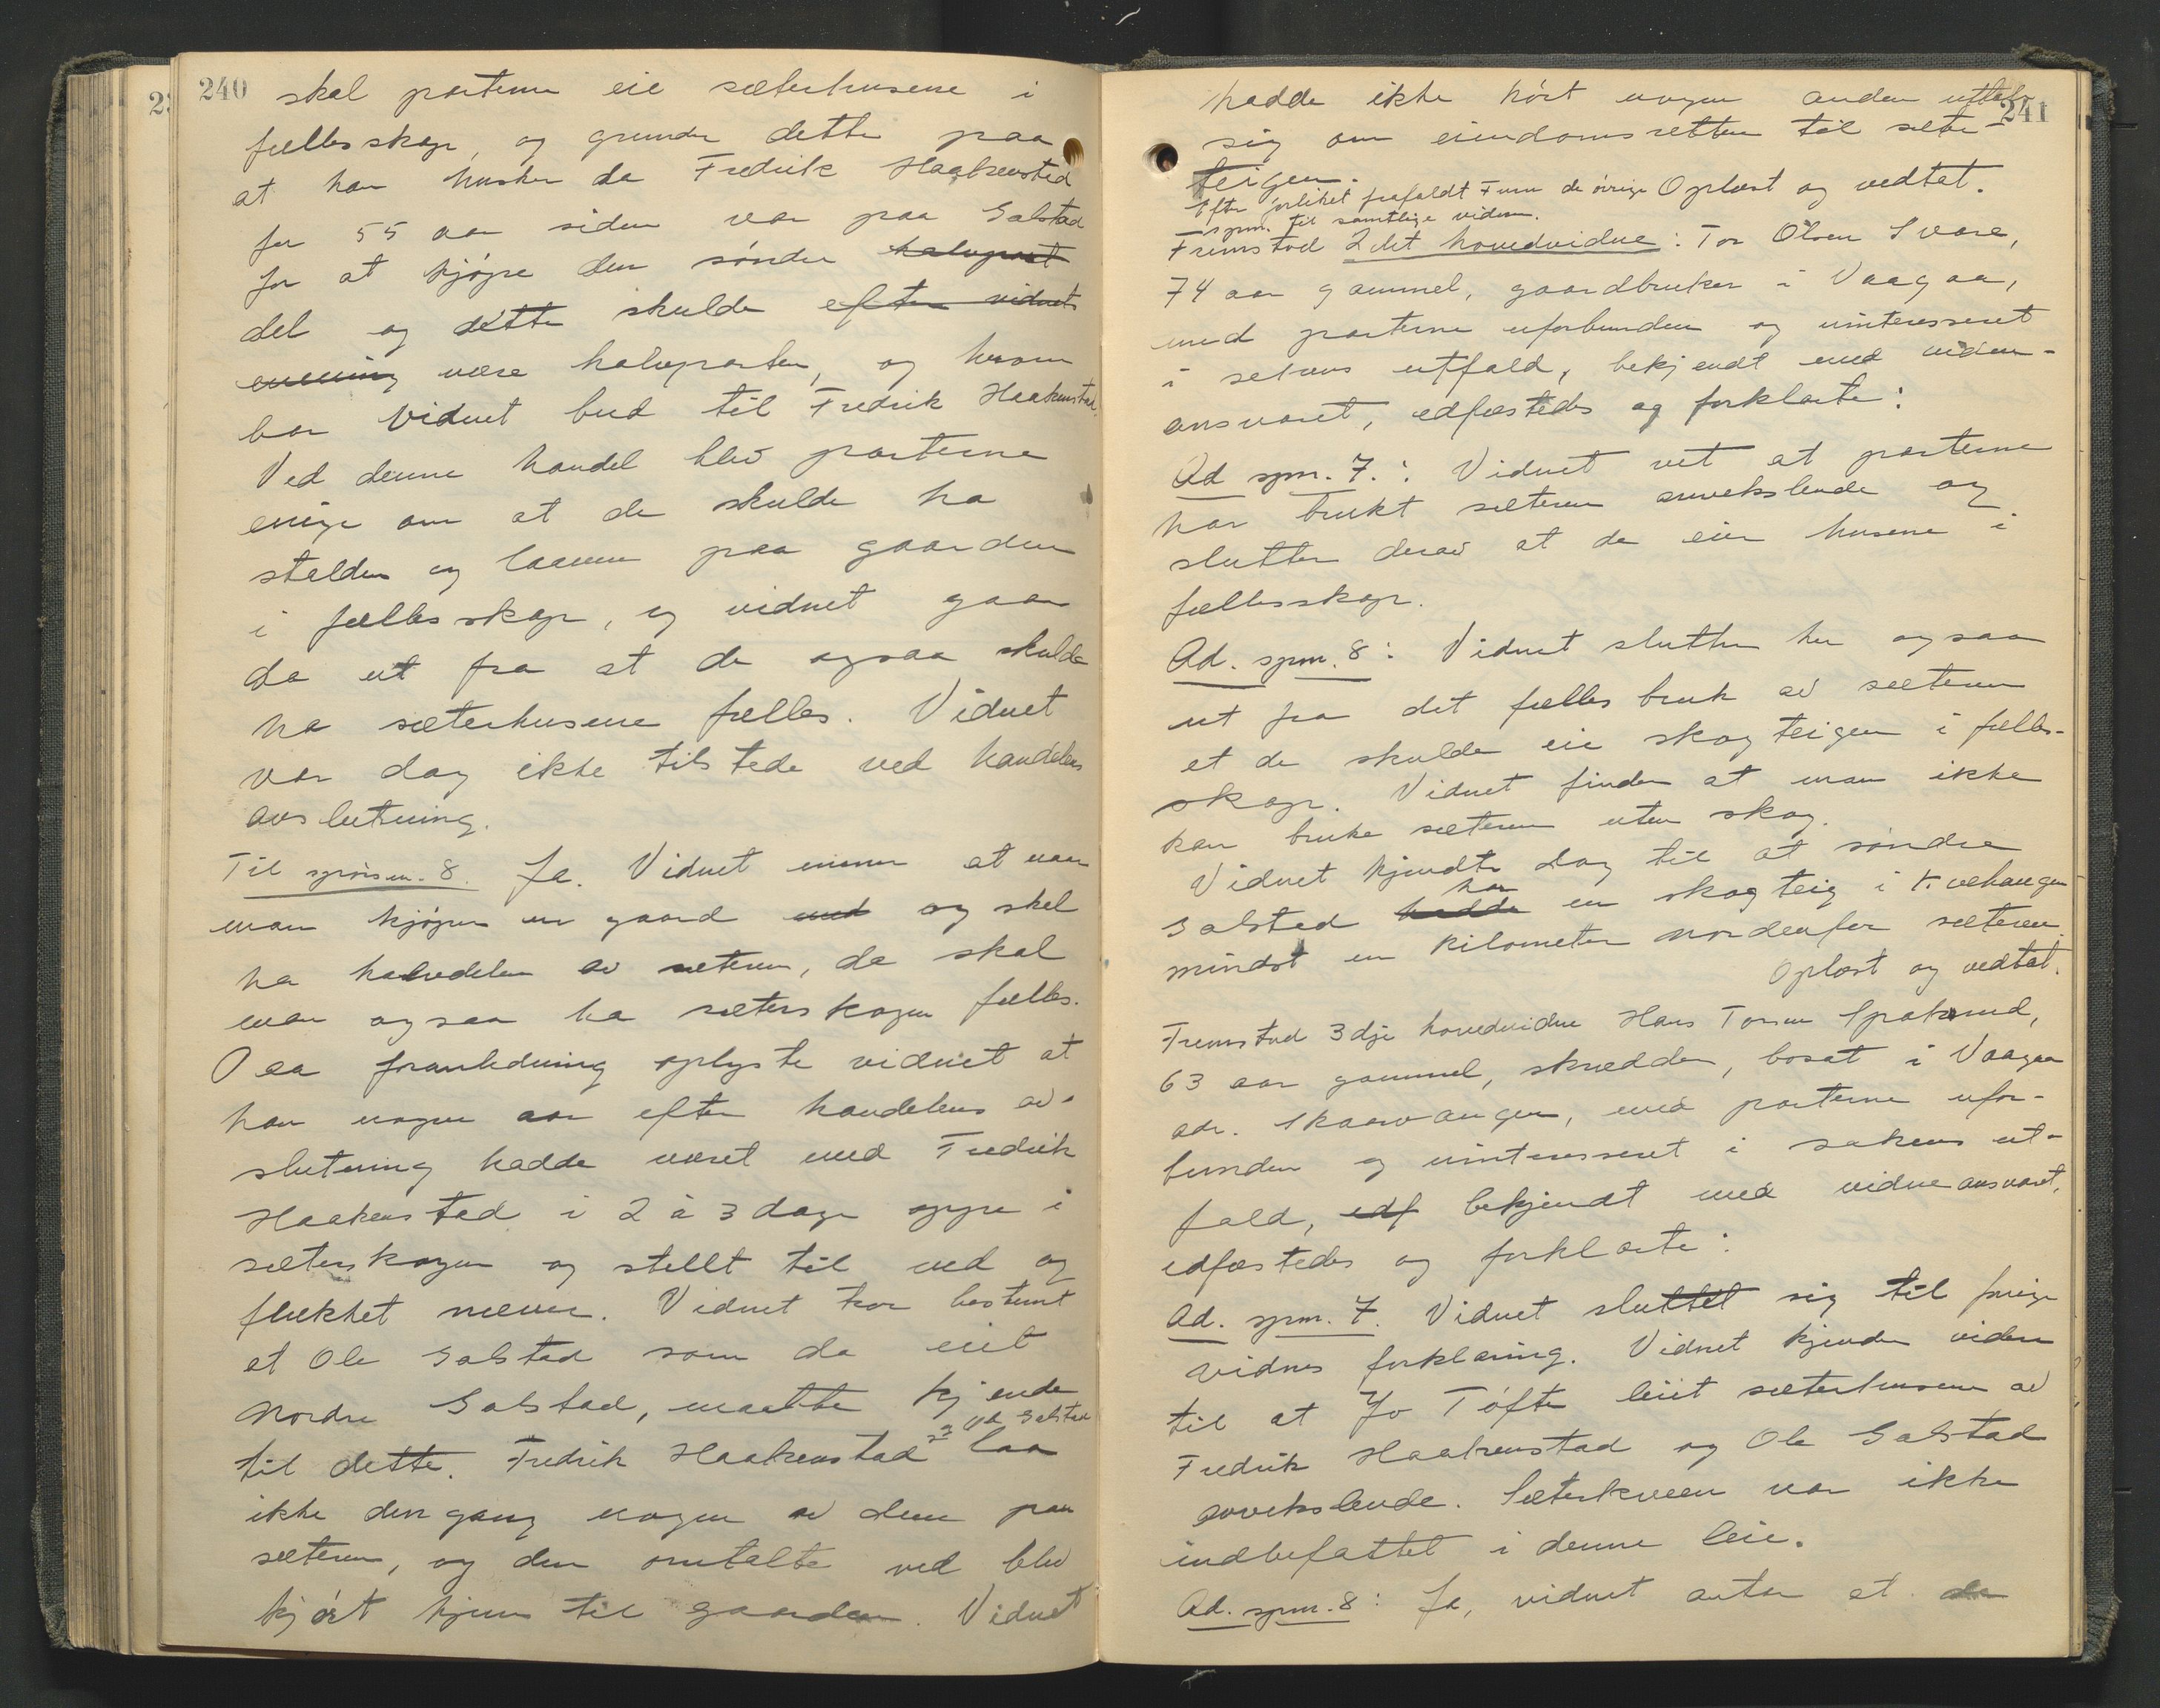 240
skal parterne eie sæterhusene i
fællesskap, og grunder dette paa
at han husker da Fredrik Haakenstad
for 55 aar siden var paa Galstad
for at kjøpe den søndre halvpart
del og dette skulde efter vidnets
mening være halvparten, og herom
bar vidnet bud til Fredrik Haakenstad.
Ved denne handel blev parterne
enige om at de skulde ha
stalden og laaven paa gaarden
i fællesskap, og vidnet gaar
da ut fra at de ogsaa skulde
ha sæterhusene fælles. Vidnet
var dog ikke tilstede ved handelens
avslutning.
Til spørsm. 8. Ja. Vidnet mener at naar
man kjøper en gaard med og skal
ha halvdelen av sæteren, da skal
man ogsaa ha sæterskogen fælles.
Paa foranledning oplyste vidnet at
han nogen aar efter handelens av-
slutning hadde været med Fredrik
Haakenstad i 2 à 3 dage oppe i
sæterskogen og stellt til ved og
flækket næver. Vidnet tror bestemt
at Ole Galstad som da eiet
nordre Galstad, maatte kjende
til dette. Fredrik Haakenstad og Ole Galstad laa
ikke dengang nogen av dem paa
sæteren, og den omtalte ved blev
kjørt hjem til gaarden. Vidnet
241
hadde ikke hørt nogen anden uttale
sig om eiendomsretten til sæter-
teigen.
Efter forliket frafaldt Furu de øvrige Oplæst og vedtat.
spm. til samtlige vidner.
Fremstod 2det hovedvidne: Tor Olsen Svare,
74 aar gammel, gaardbruker i Vaagaa,
med parterne uforbunden og uinteresseret
i sakens utfald, bekjendt med vidne-
ansvaret, edfæstedes og forklarte:
Ad spm. 7.: Vidnet vet at parterne
har brukt sæteren avvekslende og
slutter derav at de eier husene i
fællesskap.
Ad. spm. 8: Vidnet slutter her ogsaa
ut fra det fælles bruk av sæteren
at de skulde eie skogteigen i fælles-
skap. Vidnet finder at man ikke
kan bruke sæteren uten skog.
Vidnet kjendte dog til at søndre
Galstad hadde har en skogteig i Kvehaugen
mindst en kilometer nordenfor sæteren.
Oplæst og vedtat.
Fremstod 3dje hovedvidne Hans Torsen
63 aar gammel, skrædder, bosat i Vaagaa
adr. Skaarvangen, med parterne ufor-
bunden og uinteresseret i sakens ut-
fald, edf bekjendt med vidneansvaret,
edfæstedes og forklarte:
Ad. spm. 7. Vidnet sluttet sig til forrige
vidnes forklaring. Vidnet kjender videre
til at Jo Tofte leiet sæterhusene av
Fredrik Haakenstad og Ole Galstad
avvekslende. Sæterkveen var ikke
indbefattet i denne leie.
Ad. spm. 8: Ja, vidnet antar at de